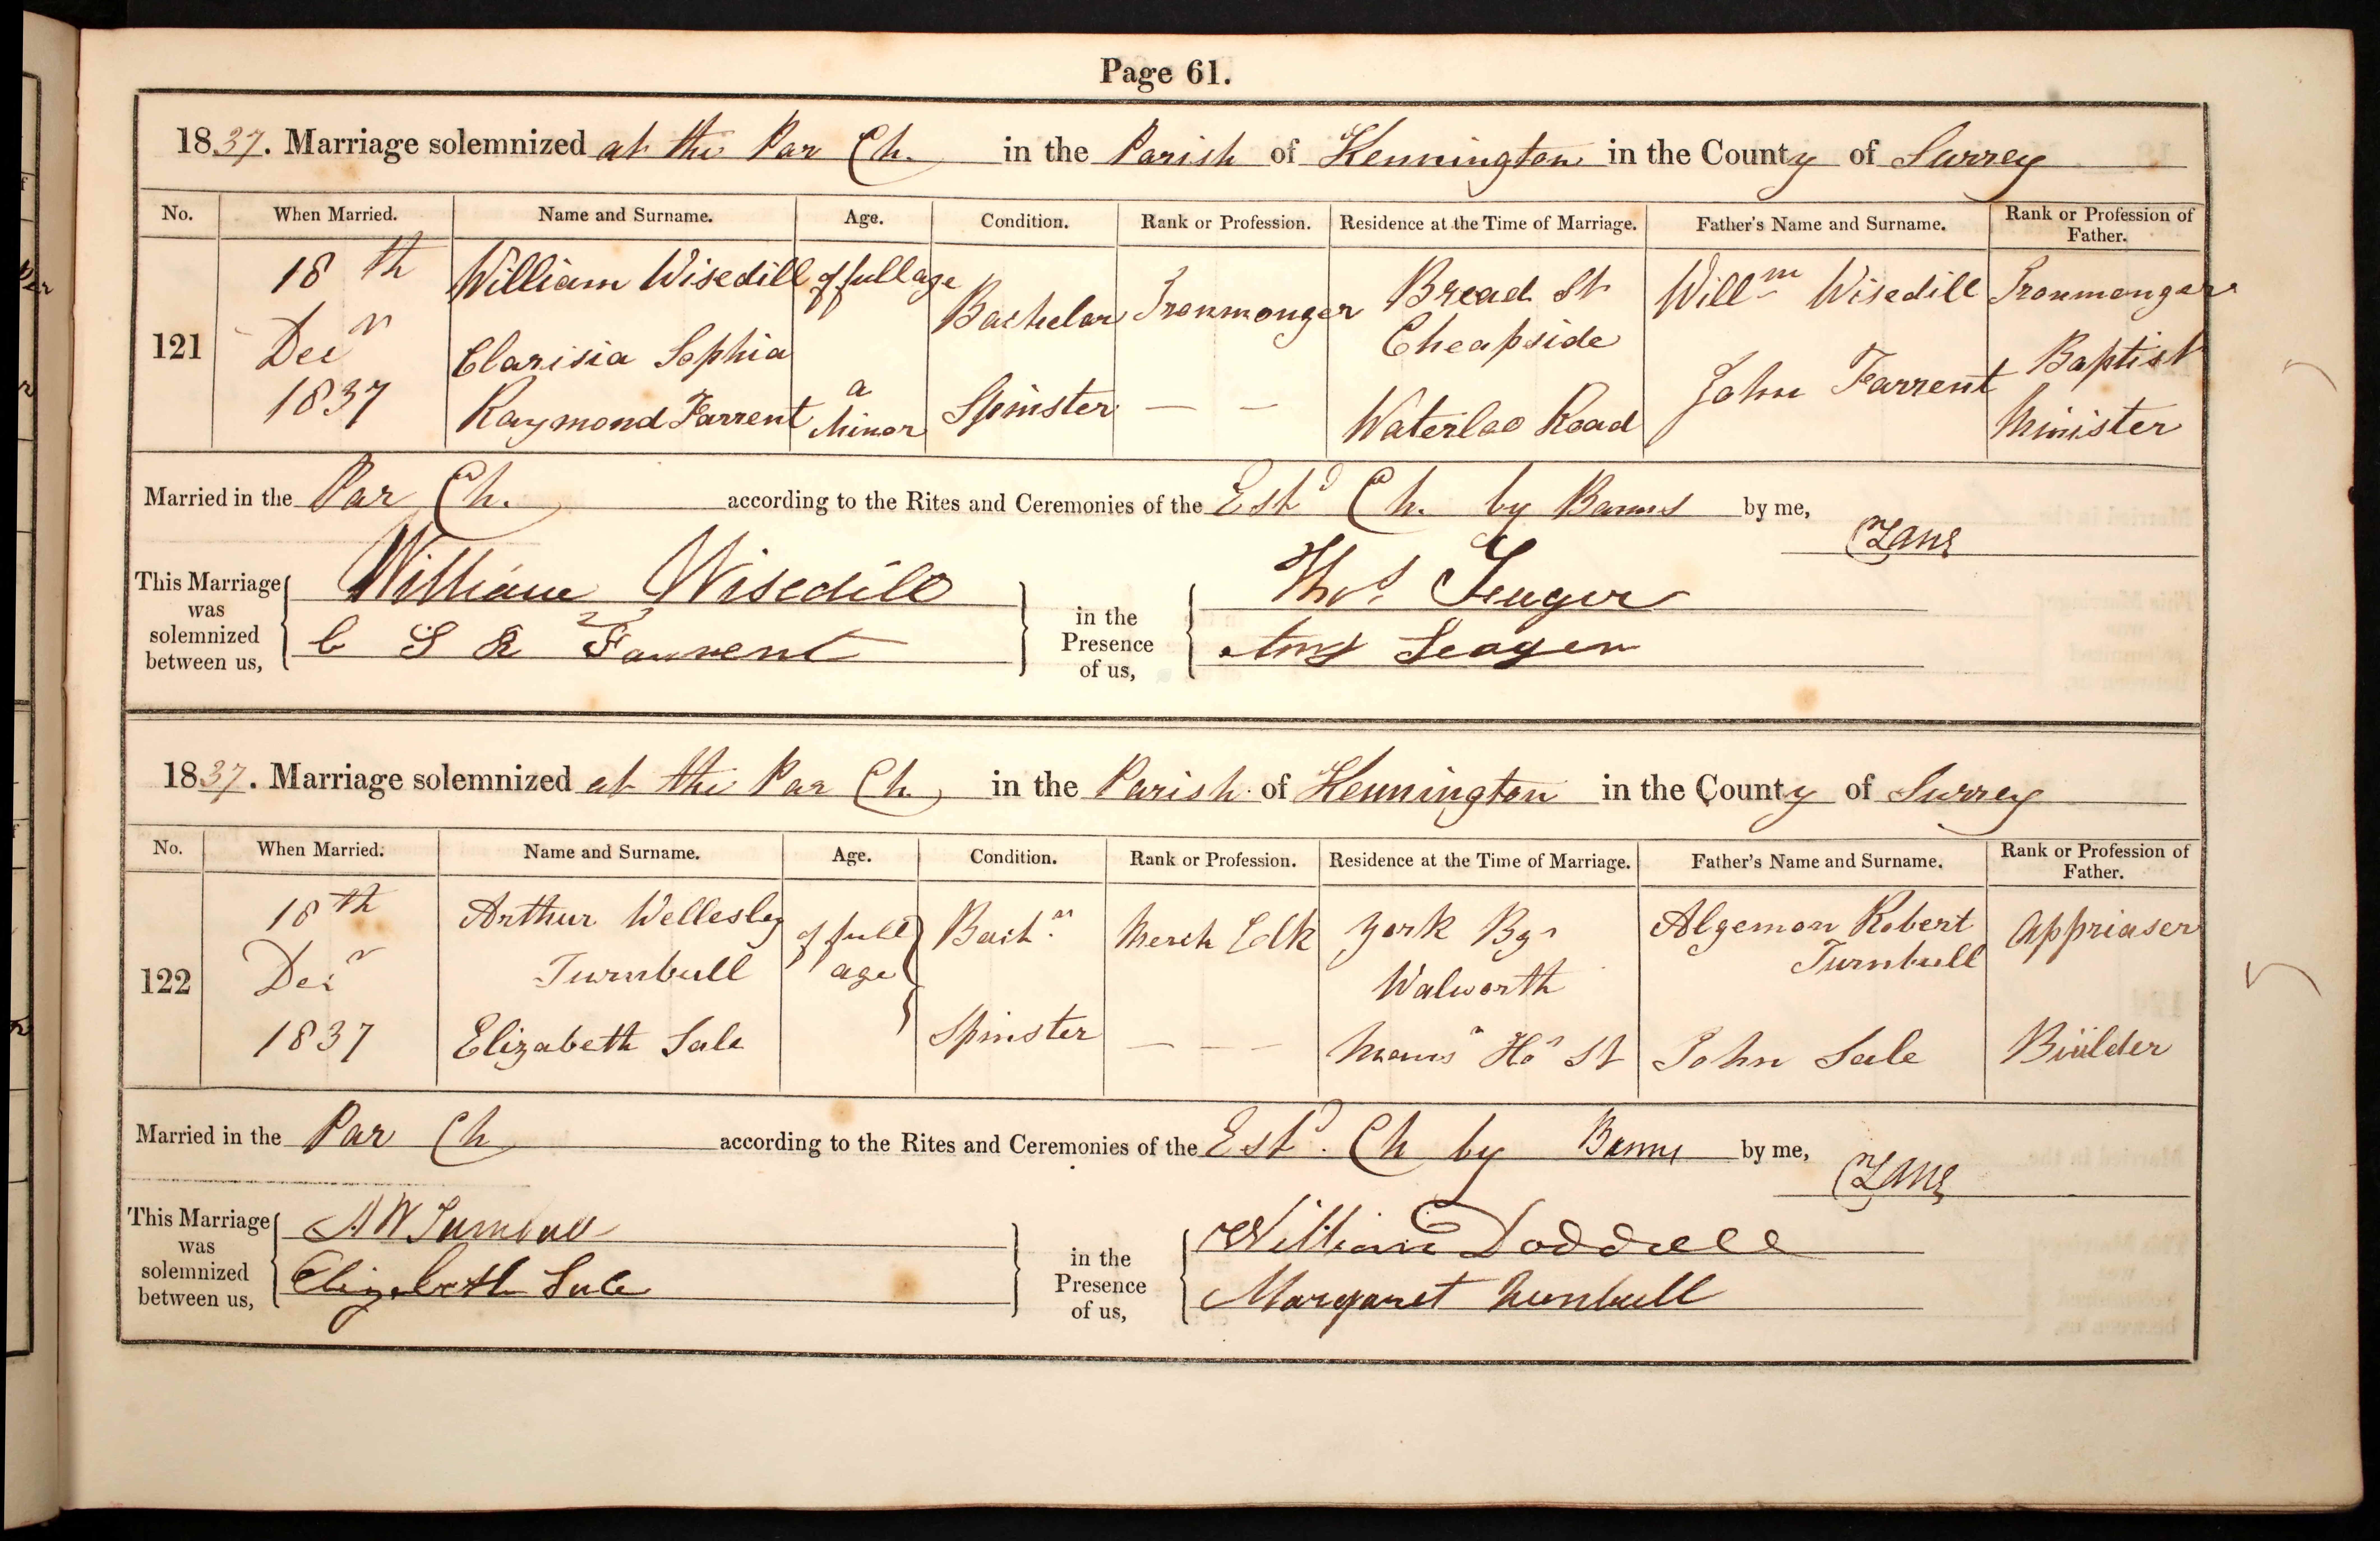 Page 61.
1837. Marriage solemnized at the Par Ch. in the Parish of Kennington in the County of Surrey
No. When Married. Name and Surname. Age. Condition. Rank or Profession. Residence at the Time of Marriage. Father's Name and Surname. Rank or Profession of Father.
121
18th Decr 1837
William Wisedill of full age Bachelor Ironmonger Bread St Cheapside Willm Wisedill Ironmonger
Clarisia Sophia Raymond Farrent a Minor Spinster — — Waterloo Road John Farrent Baptist Minister
Married in the Par Ch. according to the Rites and Ceremonies of the Estd Ch. by Banns by me,
This Marriage was solemnized between us,
William Wisedill
C S R Farrent
in the Presence of us,
Thos. Seager
Amy Seager
1837. Marriage solemnized at the Par Ch in the Parish of Kennington in the County of Surrey
No. When Married. Name and Surname. Age. Condition. Rank or Profession. Residence at the Time of Marriage. Father's Name and Surname. Rank or Profession of Father.
122
18th Decr 1837
Arthur Wellesley Turnbull of full age Bachr Merch Clk York Walworth Algernon Robert Turnbull Appriaser
Elizabeth Sale Spinster — — — Hos St John Sale Builder
Married in the Par Ch according to the Rites and Ceremonies of the Estd. Ch by Banns by me,
This Marriage was solemnized between us,
A W Turnbull
Elizabeth Sale
in the Presence of us,
William Doddrell
Margaret Turnbull